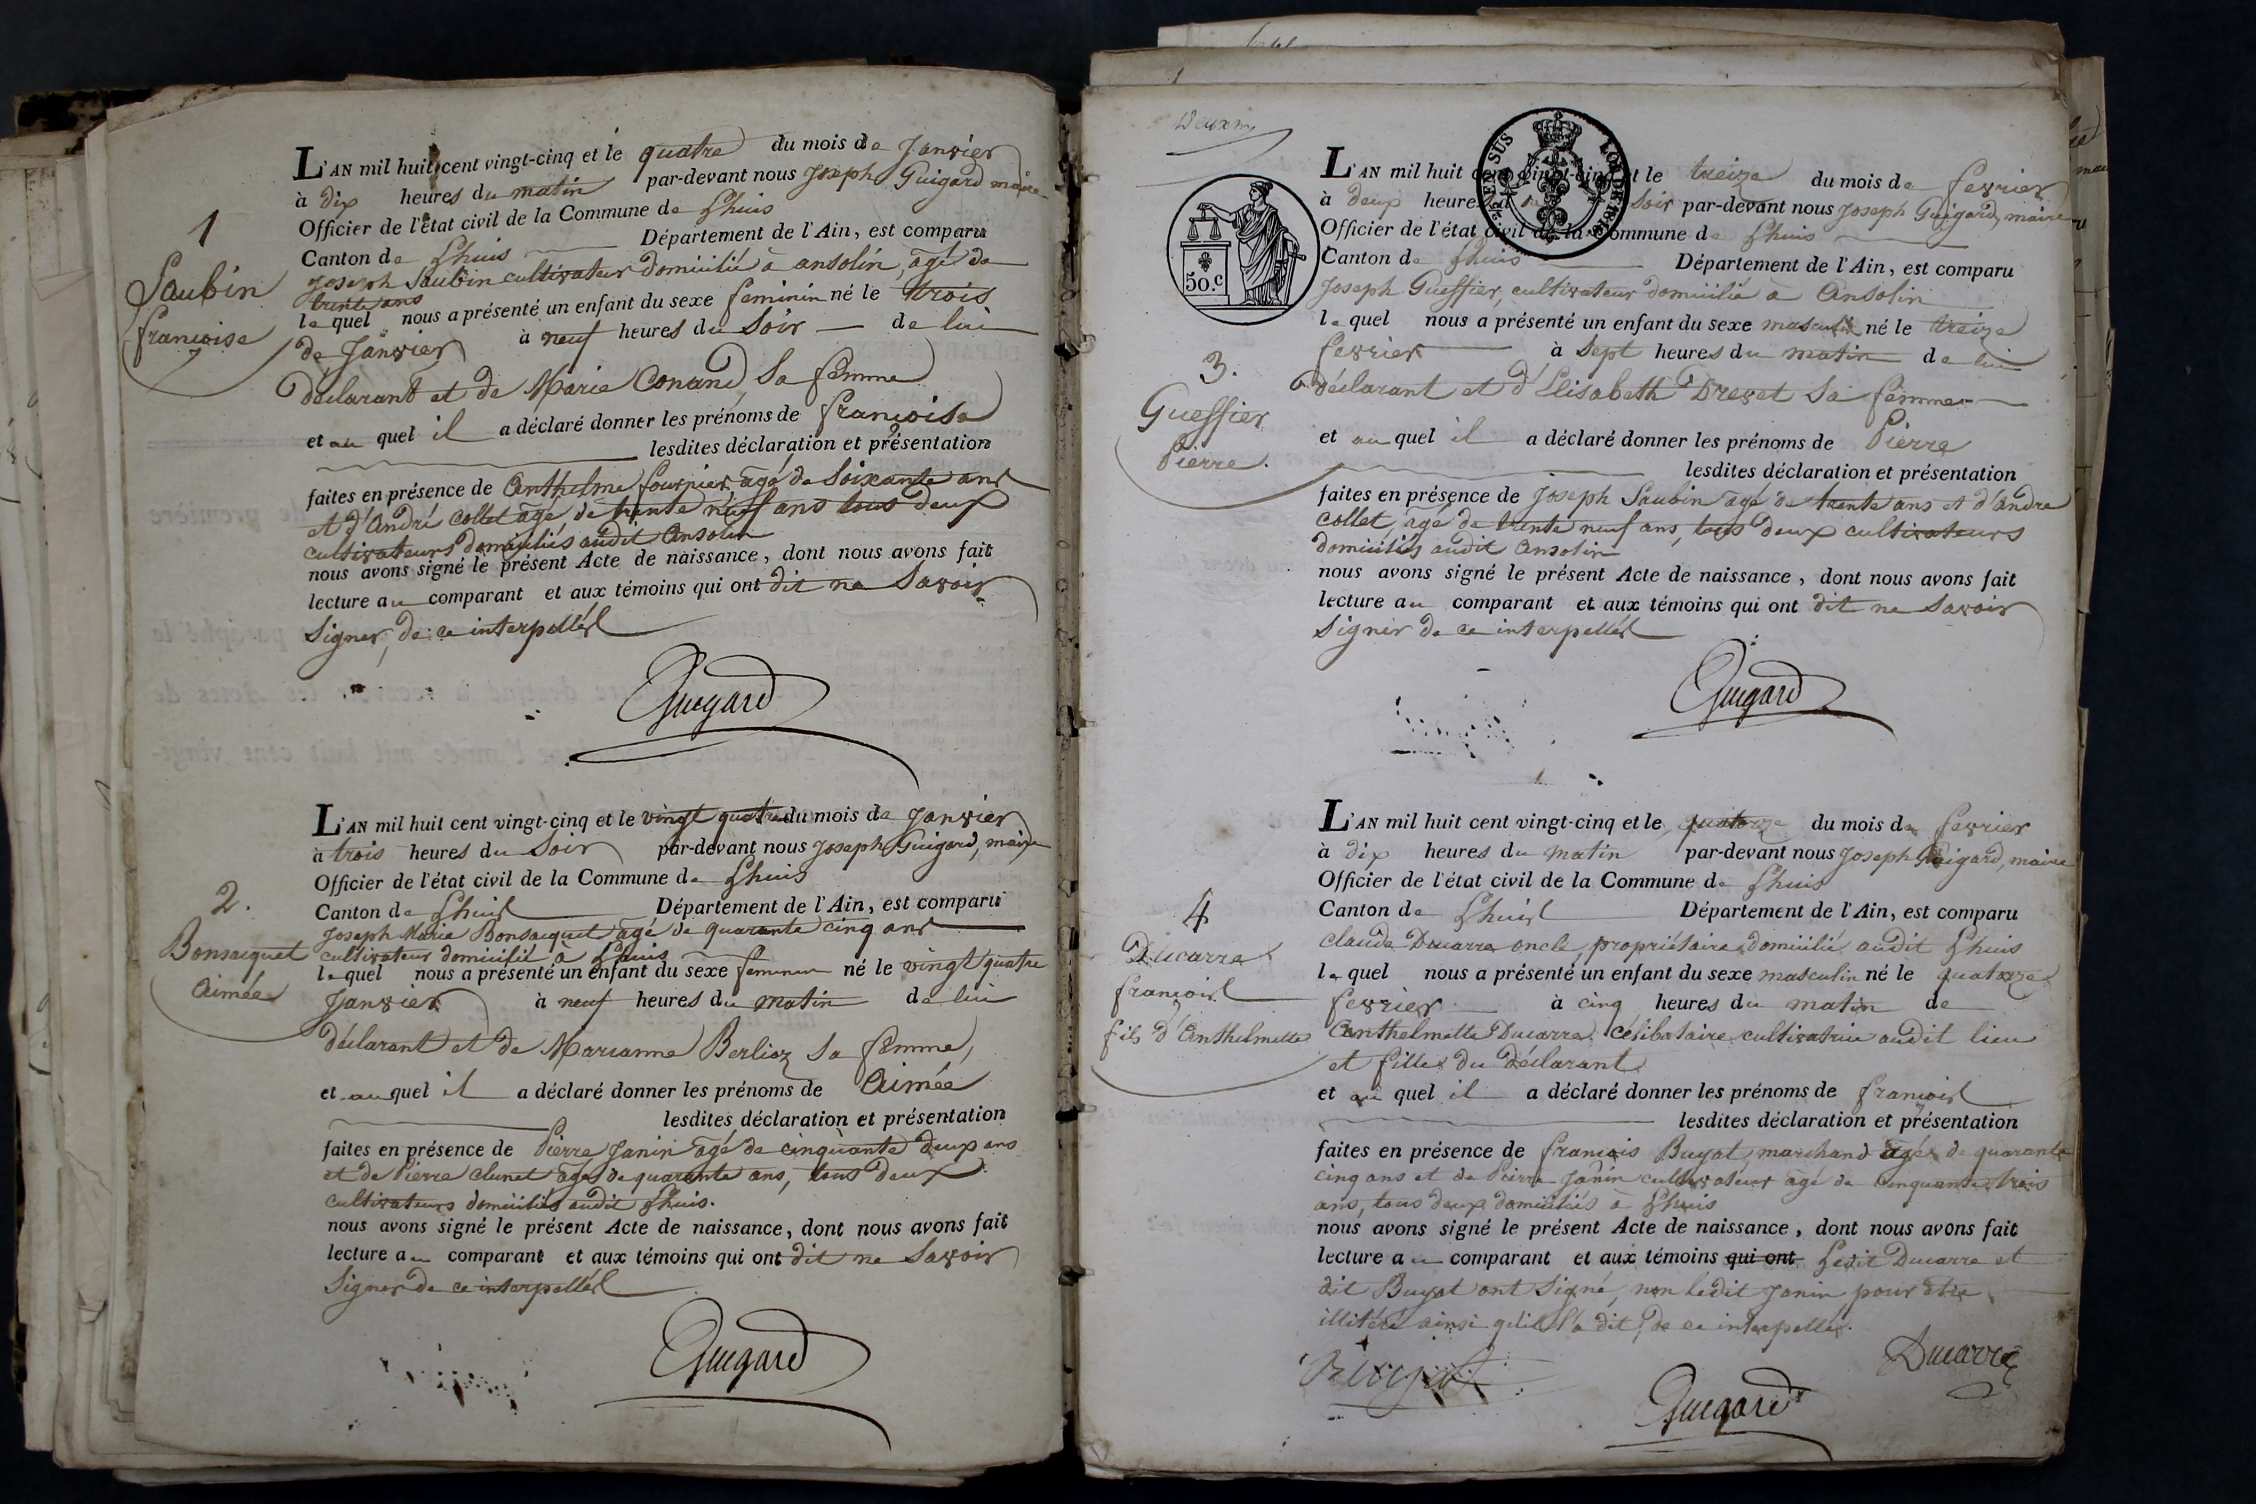 1
Saubin
françoise
L'AN mil huit cent vingt-cinq et le quatre du mois de Janvier
à dix heures du matin par-devant nous Joseph Guigard maire
Officier de l'état civil de la Commune de Lhuis
Canton de Lhuis Département de l'Ain, est comparu
Joseph Saubin cultivateur domicilié à ansolin, âgé de
trente ans
le quel nous a présenté un enfant du sexe feminin né le trois
de Janvier à neuf heures du Soir de lui
déclarant et de Marie Conand, Sa femme
et au quel il a déclaré donner les prénoms de françoise
lesdites déclaration et présentation
faites en présence de Anthelme fournier âgé de Soixante ans
et d'André Collet âgé de trente neuf ans tous deux
cultivateurs domiciliés audit Ansolin
nous avons signé le présent Acte de naissance, dont nous avons fait
lecture au comparant et aux témoins qui ont dit ne Savoir
Signer, de ce interpellés
Guigard
2.
Bonsacquet
Aimée
L'AN mil huit cent vingt-cinq et le vingt quatre du mois de Janvier
à trois heures du Soir par-devant nous Joseph Guigard, maire
Officier de l'état civil de la Commune de Lhuis
Canton de Lhuis Département de l'Ain, est comparu
Joseph Marie Bonsacquet âgé de quarante cinq ans
cultivateur domicilié à Lhuis
le quel nous a présenté un enfant du sexe feminin né le vingt quatre
Janvier à neuf heures du matin de lui
déclarant et de Marianne Berlioz Sa femme,
et au quel il a déclaré donner les prénoms de Aimée
lesdites déclaration et présentation
faites en présence de Pierre Janin âgé de cinquante deux ans
et de Pierre Clunet âgé de quarante ans, tous deux
cultivateurs domiciliés audit Lhuis.
nous avons signé le présent Acte de naissance, dont nous avons fait
lecture au comparant et aux témoins qui ont dit ne Savoir
Signer de ce interpellés
Guigard
50.c
3.
Gueffier
Pierre.
L'AN mil huit cent vingt-cinq et le treize du mois de fevrier
à deux heures du Soir par-devant nous Joseph Guigard, maire
Officier de l'état civil de la Commune de Lhuis
Canton de Lhuis Département de l'Ain, est comparu
Joseph Gueffier, cultivateur domicilié à Ansolin
le quel nous a présenté un enfant du sexe masculin né le treize
fevrier à Sept heures du matin de lui
déclarant et d'Elisabeth Drevet Sa femme
et au quel il a déclaré donner les prénoms de Pierre
lesdites déclaration et présentation
faites en présence de Joseph Saubin âgé de trente ans et d'andré
Collet, âgé de trente neuf ans, tous deux cultivateurs
domiciliés audit Ansolin
nous avons signé le présent Acte de naissance, dont nous avons fait
lecture au comparant et aux témoins qui ont dit ne Savoir
Signer de ce interpellés
Guigard
4
Ducarre
françois
fils d'Anthelmette
L'AN mil huit cent vingt-cinq et le quatorze du mois de fevrier
à dix heures du matin par-devant nous Joseph Guigard, maire
Officier de l'état civil de la Commune de Lhuis
Canton de Lhuis Département de l'Ain, est comparu
claude Ducarre oncle, propriétaire domicilié audit Lhuis
le quel nous a présenté un enfant du sexe masculin né le quatorze
fevrier à cinq heures du matin de
Anthelmette Ducarre, célibataire cultivatrice audit lieu
et fille du déclarant
et au quel il a déclaré donner les prénoms de françois
lesdites déclaration et présentation
faites en présence de françois Buyat, marchand âgé de quarante
cinq ans et de Pierre Janin cultivateur âgé de cinquante trois
ans, tous deux domiciliés à Lhuis
nous avons signé le présent Acte de naissance, dont nous avons fait
lecture au comparant et aux témoins qui ont Ledit Ducarre et
dit Buyat ont Signé, non Ledit Janin pour être
illitéré ainsi qu'il l'a dit, de ce interpellé.
Ducarre
Guigard